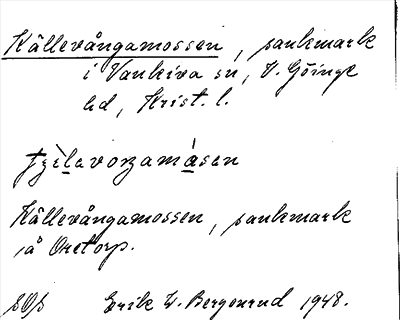 Källevångamossen, sankmark
i Vankiva sn, V. Göinge
hd, Krist. l.
Källevångamossen, sankmark
å Oretorp.
Erik W. Bergenrud 1948.